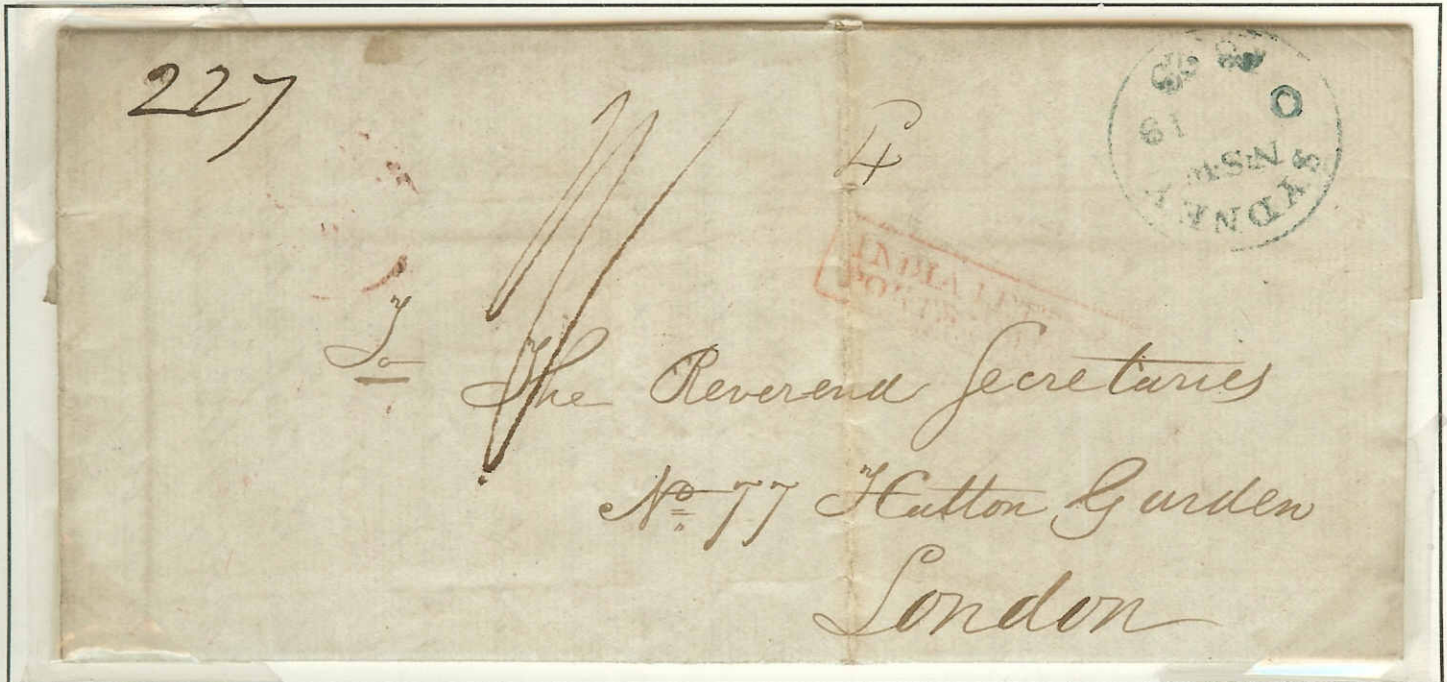 227
4
SYDNEY
INDIA LET
To
The Reverend Secretaries
No 77 Hatton Garden
London